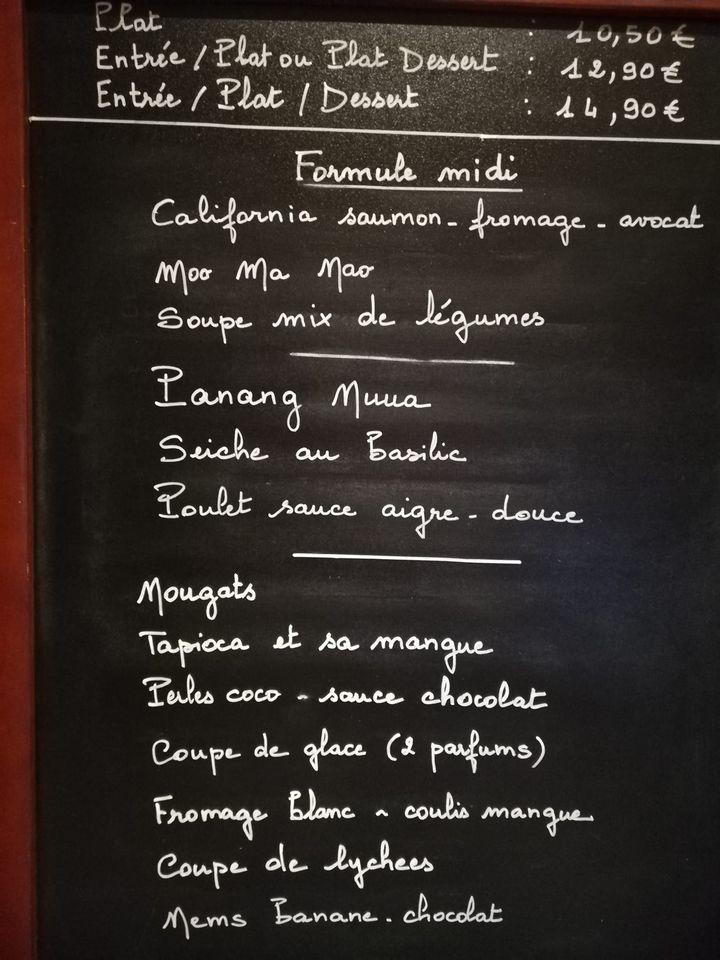 Plat : 10,50 €
Entrée / Plat ou Plat Dessert : 12,90 €
Entrée / Plat / Dessert : 14,90 €
Formule midi
California saumon - fromage - avocat
Moo Ma Nao
Soupe mix de légumes
Panang Muua
Seiche au Basilic
Poulet sauce aigre - douce
Nougats
Tapioca et sa mangue
Perles coco - sauce chocolat
Coupe de glace (2 parfums)
Fromage Blanc ~ coulis mangue
Coupe de lychees
Nems Banane - chocolat